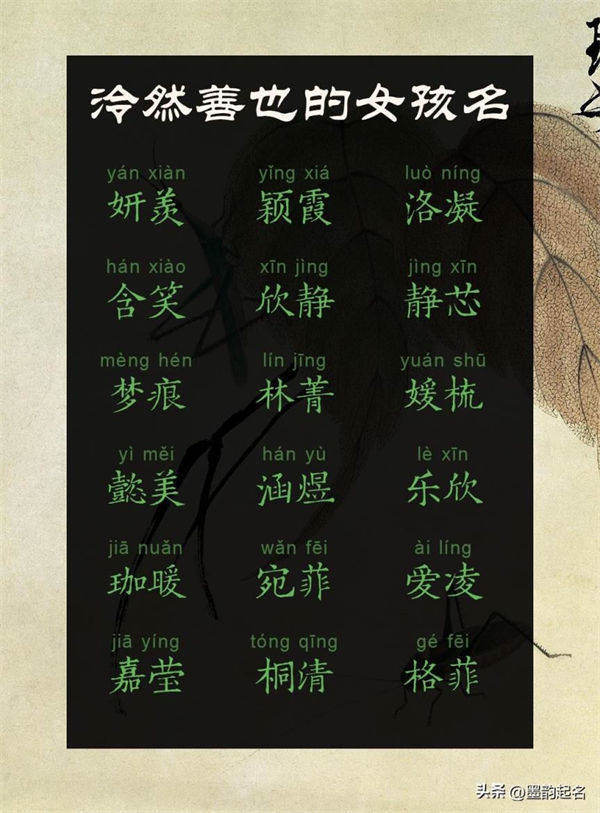 泠然善也的女孩名
yán xiàn yǐng xiá luò níng
妍羡 颖霞 洛凝
hán xiào xīn jìng jìng xīn
含笑 欣静 静芯
mèng hén lín jīng yuán shū
梦痕 林菁 媛梳
yì měi hán yù lè xīn
懿美 涵煜 乐欣
jiā nuǎn wǎn fēi ài líng
珈暖 宛菲 爱凌
jiā yíng tóng qīng gé fēi
嘉莹 桐清 格菲
头条 @墨韵起名